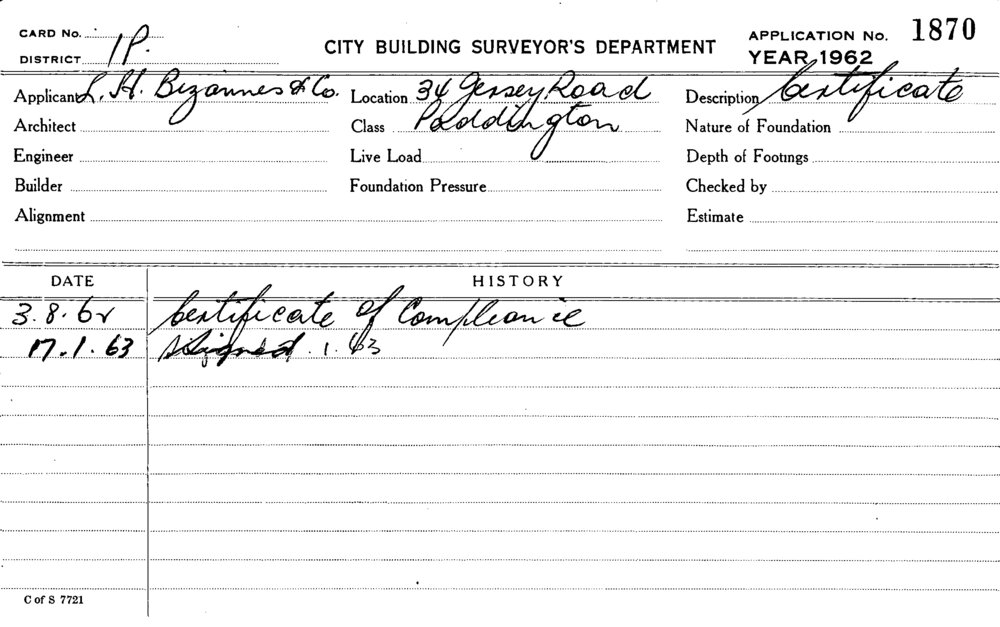 CARD No.
DISTRICT 1P.
CITY BUILDING SURVEYOR'S DEPARTMENT
APPLICATION No. 1870
YEAR 1962
Applicant L. H. Bizannes & Co. Location 34 Jersey Road Description Certificate
Architect Class Paddington Nature of Foundation
Engineer Live Load Depth of Footings
Builder Foundation Pressure Checked by
Alignment Estimate
DATE HISTORY
3.8.62 Certificate of Compliance
17.1.63 signed .1.63
C of S 7721